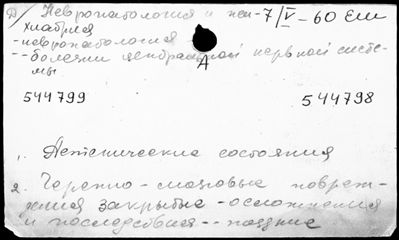 Д) Невропатология и пси- 7/V - 60 Ещи
хиатрия
- невропатология
-- болезни центральной нервной систе-
мы
А
544799 544798
1. Астенические состояния
2. Черепно-мозговые повреж-
дения закрытые - осложнения
и последствия -- поздние